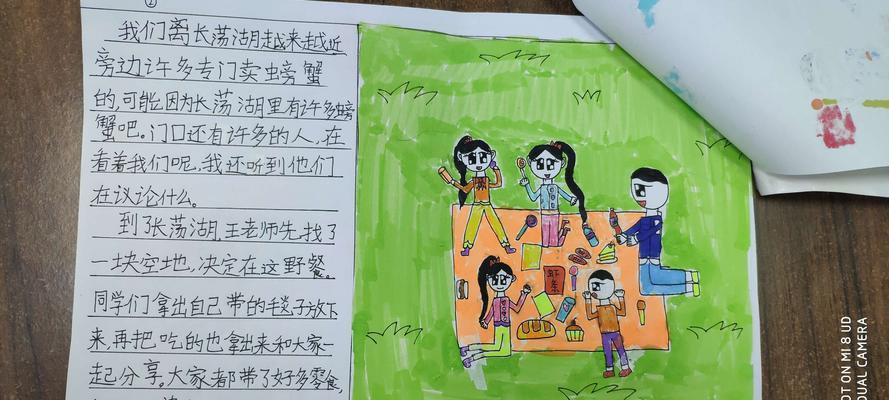 ②
我们离长荡湖越来越近
旁边许多专门卖螃蟹
的,可能因为长荡湖里有许多螃
蟹吧。门口还有许多的人,在
看着我们呢,我还听到他们
在议论什么。
到了长荡湖,王老师先找了
一块空地,决定在这野餐。
同学们拿出自己带的毯子放下
来,再把吃的也拿出来和大家一
起分享。大家都带了好多零食,
虾条
OT ON MI 8 UD
DUAL CAMERA